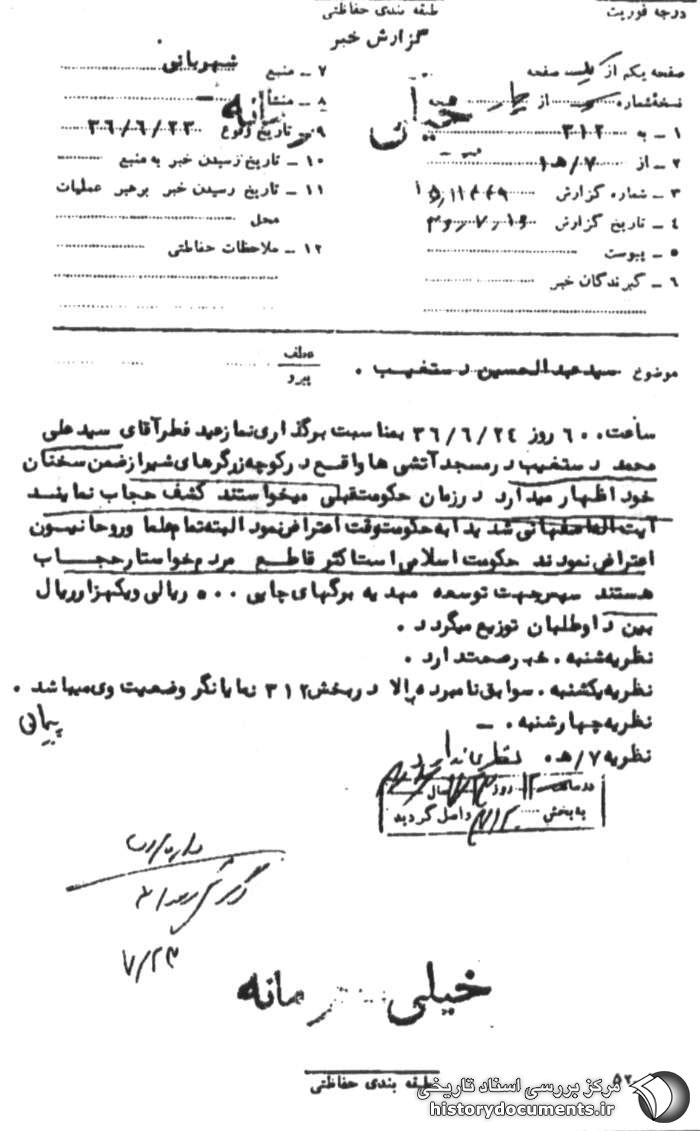 درجه فوریت
طبقه بندی حفاظتی
گزارش خبر
صفحه یکم از یک صفحه
نسخهٔ شماره از نسخه
۱ ـ به ۳۱۲
۲ ـ از ۷/ه‍ ۱
۳ ـ شماره گزارش
۴ ـ تاریخ گزارش
۵ ـ پیوست
۶ ـ گیرندگان خبر
۷ ـ منبع شهربانی
۸ ـ منشأ
۹ ـ تاریخ وقوع ۳۶/۶/۲۳
۱۰ ـ تاریخ رسیدن خبر به منبع
۱۱ ـ تاریخ رسیدن خبر برهبر عملیات
محل
۱۲ ـ ملاحظات حفاظتی
خیلی
موضوع سیدعبدالحسین دستغیب .
عطف
پیرو
ساعت ۶۰۰ روز ۳۶/۶/۲٤ بمناسبت برگذاری نماز عید فطر آقای سید علی
محمد دستغیب در مسجد آتشی ها واقع در کوچه زرگرهای شیراز ضمن سخنان
خود اظهار میدارد در زمان حکومت قبلی میخواستند کشف حجاب نمایند
آیت اله اصفهانی شدیدا به حکومت وقت اعتراض نمود البته تمام علما وروحانیون
اعتراض نمودند حکومت اسلامی است اکثر قاطع مردم خواستار حجاب
هستند سپس جهت توسعه مهدیه برگهای چاپی ۵۰۰ ریالی ویکهزار ریال
بین داوطلبان توزیع میگردد .
نظریه شنبه . خبر صحت دارد .
نظریه یکشنبه . سوابق نامبرده بالا در بخش ۳۱۲ نمایانگر وضعیت وی میباشد .
نظریه چهارشنبه . ـ
پیمانی
نظریه ۷/ه‍ . نظری ندارد
در ساعت ۱۲ روز سال
به بخش ۳۱۲ واصل گردید
۷/۲۳
خیلی محرمانه
طبقه بندی حفاظتی
۵۲
مرکز بررسی اسناد تاریخی
historydocuments.ir